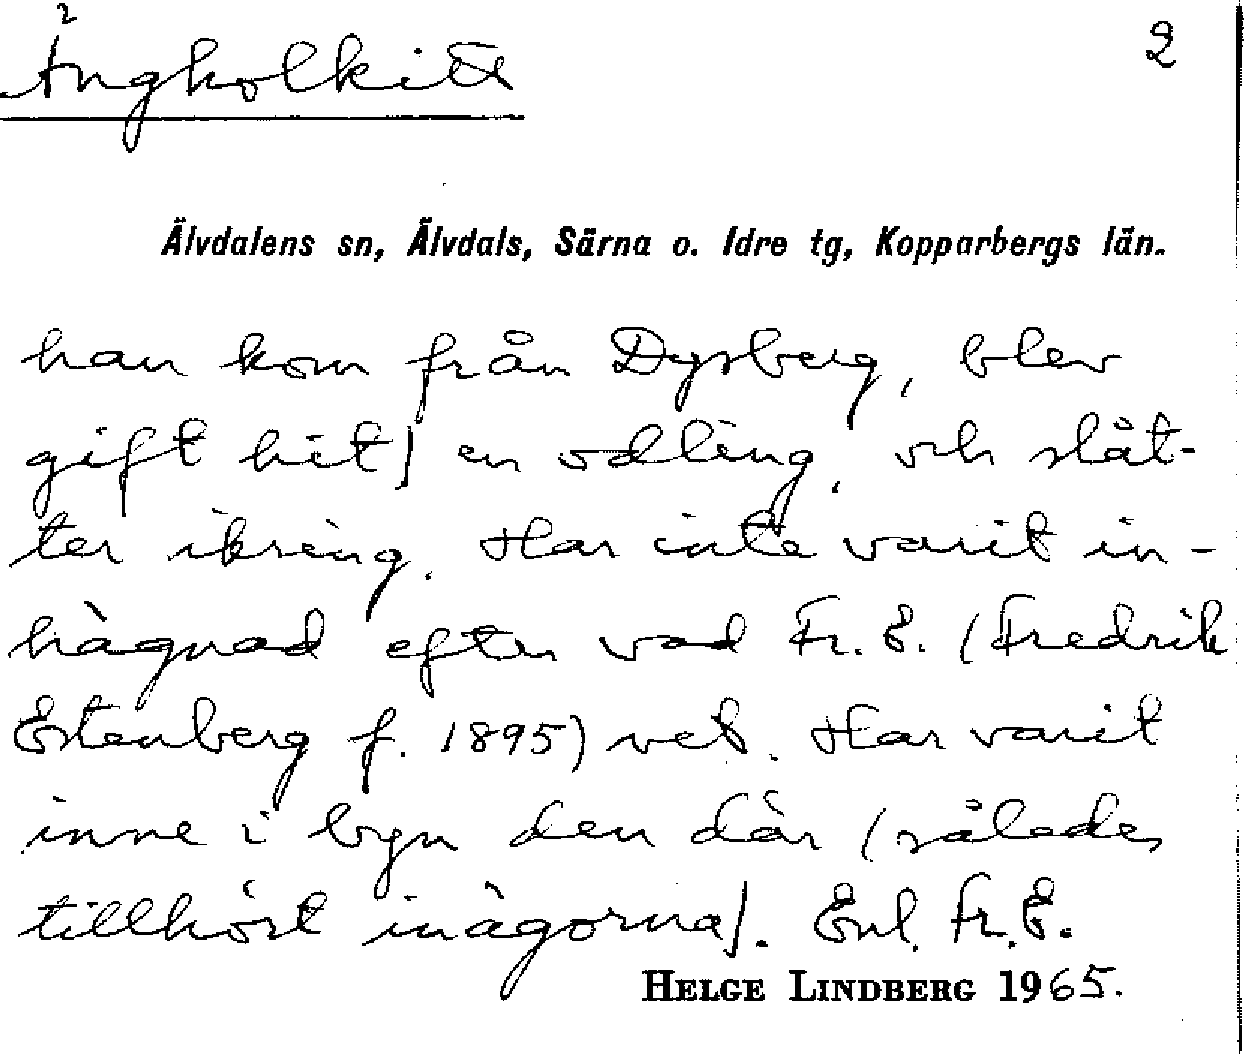 2
Älvdalens sn, Älvdals, Särna o. Idre tg, Kopparbergs län.
han kom från Dysberg, blev
gift hit) en odling, och slåt-
ter ikring. Har inte varit in-
hägnad efter vad Fr. E. (Fredrik
Estenberg f. 1895) vet. Har varit
inne i byn den där (således
tillhört inägorna). Enl. Fr. E.
HELGE LINDBERG 1965.